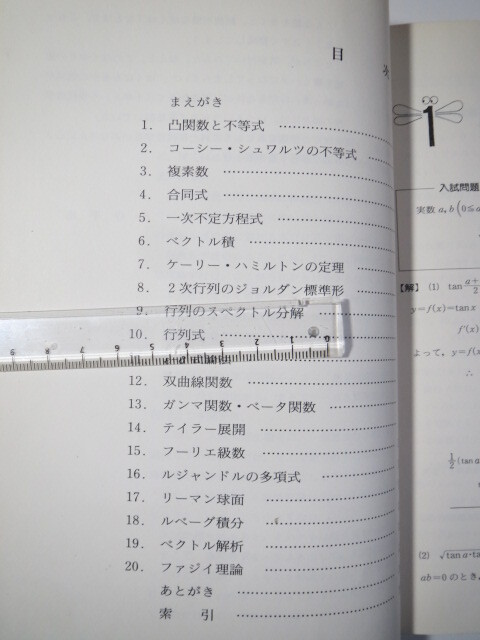 目
まえがき
1. 凸関数と不等式
2. コーシー・シュワルツの不等式
3. 複素数
4. 合同式
5. 一次不定方程式
6. ベクトル積
7. ケーリー・ハミルトンの定理
8. 2次行列のジョルダン標準形
9. 行列のスペクトル分解
10. 行列式
12. 双曲線関数
13. ガンマ関数・ベータ関数
14. テイラー展開
15. フーリエ級数
16. ルジャンドルの多項式
17. リーマン球面
18. ルベーグ積分
19. ベクトル解析
20. ファジイ理論
あとがき
索引
9 8 7 6 5 4 3 2 1 0
1
入試問題
実数 a, b (0≦a
【解】 (1) tan a+/2
y=f(x)=tan x
f'(x)
よって, y=f(x)
∴
1/2 (tan a
(2) √tan a·ta
ab=0 のとき,